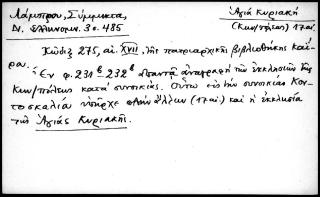 Λάμπρου, Σύμμικτα,
Ν. Ἑλληνομν. 3ο. 485
Ἁγία Κυριακή
(Κων/πόλεως) 17 αἰ.
Κώδιξ 275, αἰ. XVII, τῆς πατριαρχικῆς βιβλιοθήκης Καΐ-
ρου.
Ἐν φ. 231β-232β ἀπαντᾷ ἀναγραφὴ τῶν ἐκκλησιῶν τῆς
Κων/πόλεως κατὰ συνοικίας. Οὕτω εἰς τὴν συνοικίαν Κον-
τοσκαλία ὑπῆρχε (17 αἰ.) καὶ ἡ ἐκκλησία
τῆς Ἁγίας Κυριακῆς.